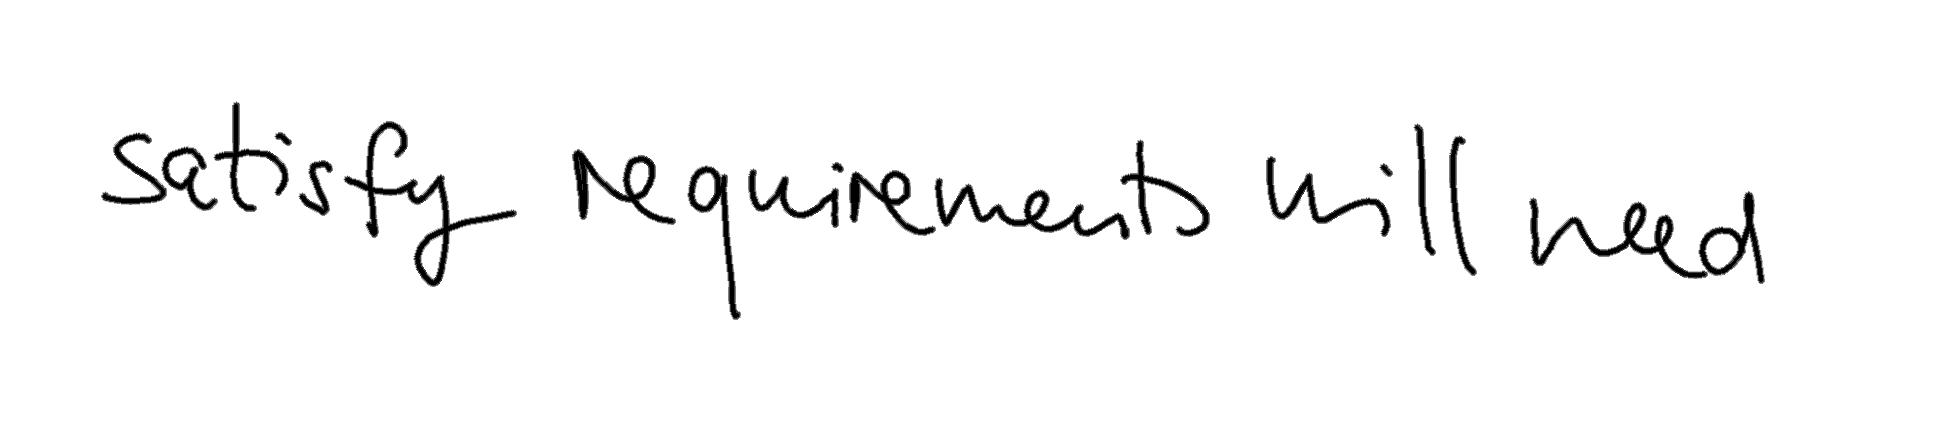 satisfy requirements will need